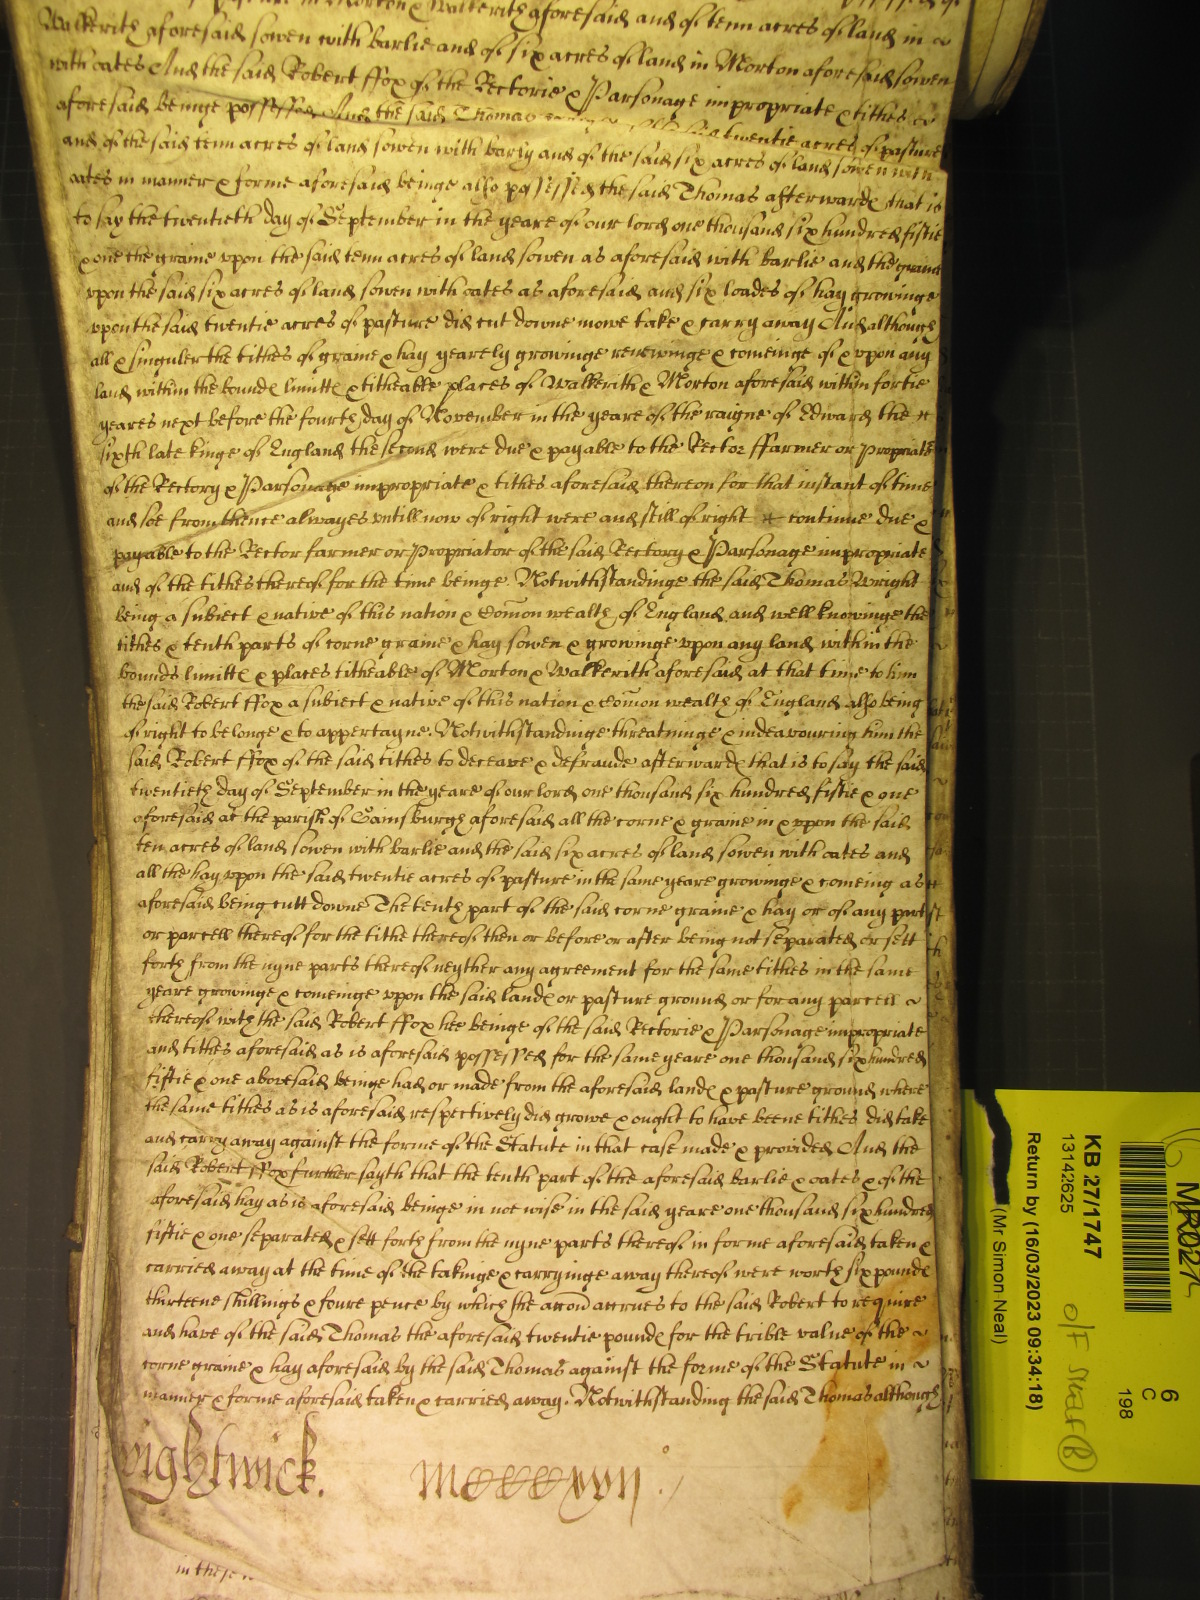 pasture in Morton & Walkerith aforesaid and of tenn acres of land in
Walkerith aforesaid sowen with barlie and of six acres of land in Morton aforesaid sowen
with oates And the said Robert ffox of the Rectorie & Parsonage impropriate & tithes
aforesaid beinge possessed And the said Thomas twentie acres of pasture
and of the said tenn acres of land sowen with barly and of the said six acres of land sowen with
oates in manner & forme aforesaid beinge also possessed the said Thomas afterward that is
to say the twentieth day of September in the yeare of our lord one thousand six hundred fiftie
& one the graine vpon the said tenn acres of land sowen as aforesaid with barlie and the graine
vpon the said six acres of land sowen with oates as aforesaid and six loades of hay growinge
vpon the said twentie acres of pasture did cut downe mowe take & carry away And although
all & singuler the tithes of graine & hay yearely growinge renewinge & comeinge of & vpon any
land within the bounds limitts & titheable places of Walkerith & Morton aforesaid within fortie
yeares next before the fourth day of November in the yeare of the raigne of Edward the
sixth late kinge of England the second were due & payable to the Rector ffarmer or Propriator
of the Rectory & Parsonage impropriate & tithes aforesaid thereon for that instant of time
and soe from thence alwayes vntill now of right were and still of right continue due &
payable to the Rector farmer or Propriator of the said Rectory & Parsonage impropriate
and of the tithes thereof for the time beinge. Notwithstandinge the said Thomas Wright
being a subiect & native of this nation & Comon wealth of England and well knowinge the
tithes & tenth parts of corne graine & hay sowen & growinge vpon any land within the
bounds limitts & places titheable of Morton & Walkerith aforesaid at that time to him
the said Robert ffox a subiect & native of this nation & comon wealth of England also being
of right to belonge & to appertayne. Notwithstandinge threatninge & indeavouring him the
said Robert ffox of the said tithes to deceave & defraude afterwards that is to say the said
twentieth day of September in the yeare of our lord one thousand six hundred fiftie & one
aforesaid at the parish of Gainsburgh aforesaid all the corne & graine in & vpon the said
ten acres of land sowen with barlie and the said six acres of land sowen with oates and
all the hay vpon the said twentie acres of pasture in the same yeare growinge & comeing as
aforesaid being cutt downe The tenth part of the said corne graine & hay or of any part
or parcell thereof for the tithe thereof then or before or after being not separated or sett
forth from the nyne parts thereof neyther any agreement for the same tithes in the same
yeare growinge & comeinge vpon the said lands or pasture ground or for any parcell
thereof with the said Robert ffox hee beinge of the said Rectorie & Parsonage impropriate
and tithes aforesaid as is aforesaid possessed for the same yeare one thousand six hundred
fiftie & one abovesaid beinge had or made from the aforesaid lands & pasture ground where
the same tithes as is aforesaid respectively did growe & ought to have beene tithes did take
and carry away against the forme of the Statute in that case made & provided And the
said Robert ffox further sayth that the tenth part of the aforesaid barlie & oates & of the
aforesaid hay as is aforesaid beinge in noe wise in the said yeare one thousand six hundred
fiftie & one separated & sett forth from the nyne parts thereof in forme aforesaid taken &
carried away at the time of the takinge & carryinge away thereof were worth six pounds
thirteene shillings & foure pence by which the accon accrues to the said Robert to require
and have of the said Thomas the aforesaid twentie pounds for the trible value of the
corne graine & hay aforesaid by the said Thomas against the forme of the Statute in
manner & forme aforesaid taken & carried away. Notwithstanding the said Thomas although
Wightwick.
in these
MR027
KB 27/1747
13142625
Return by (16/03/2023 09:34:18)
(Mr Simon Neal)
6
C
198